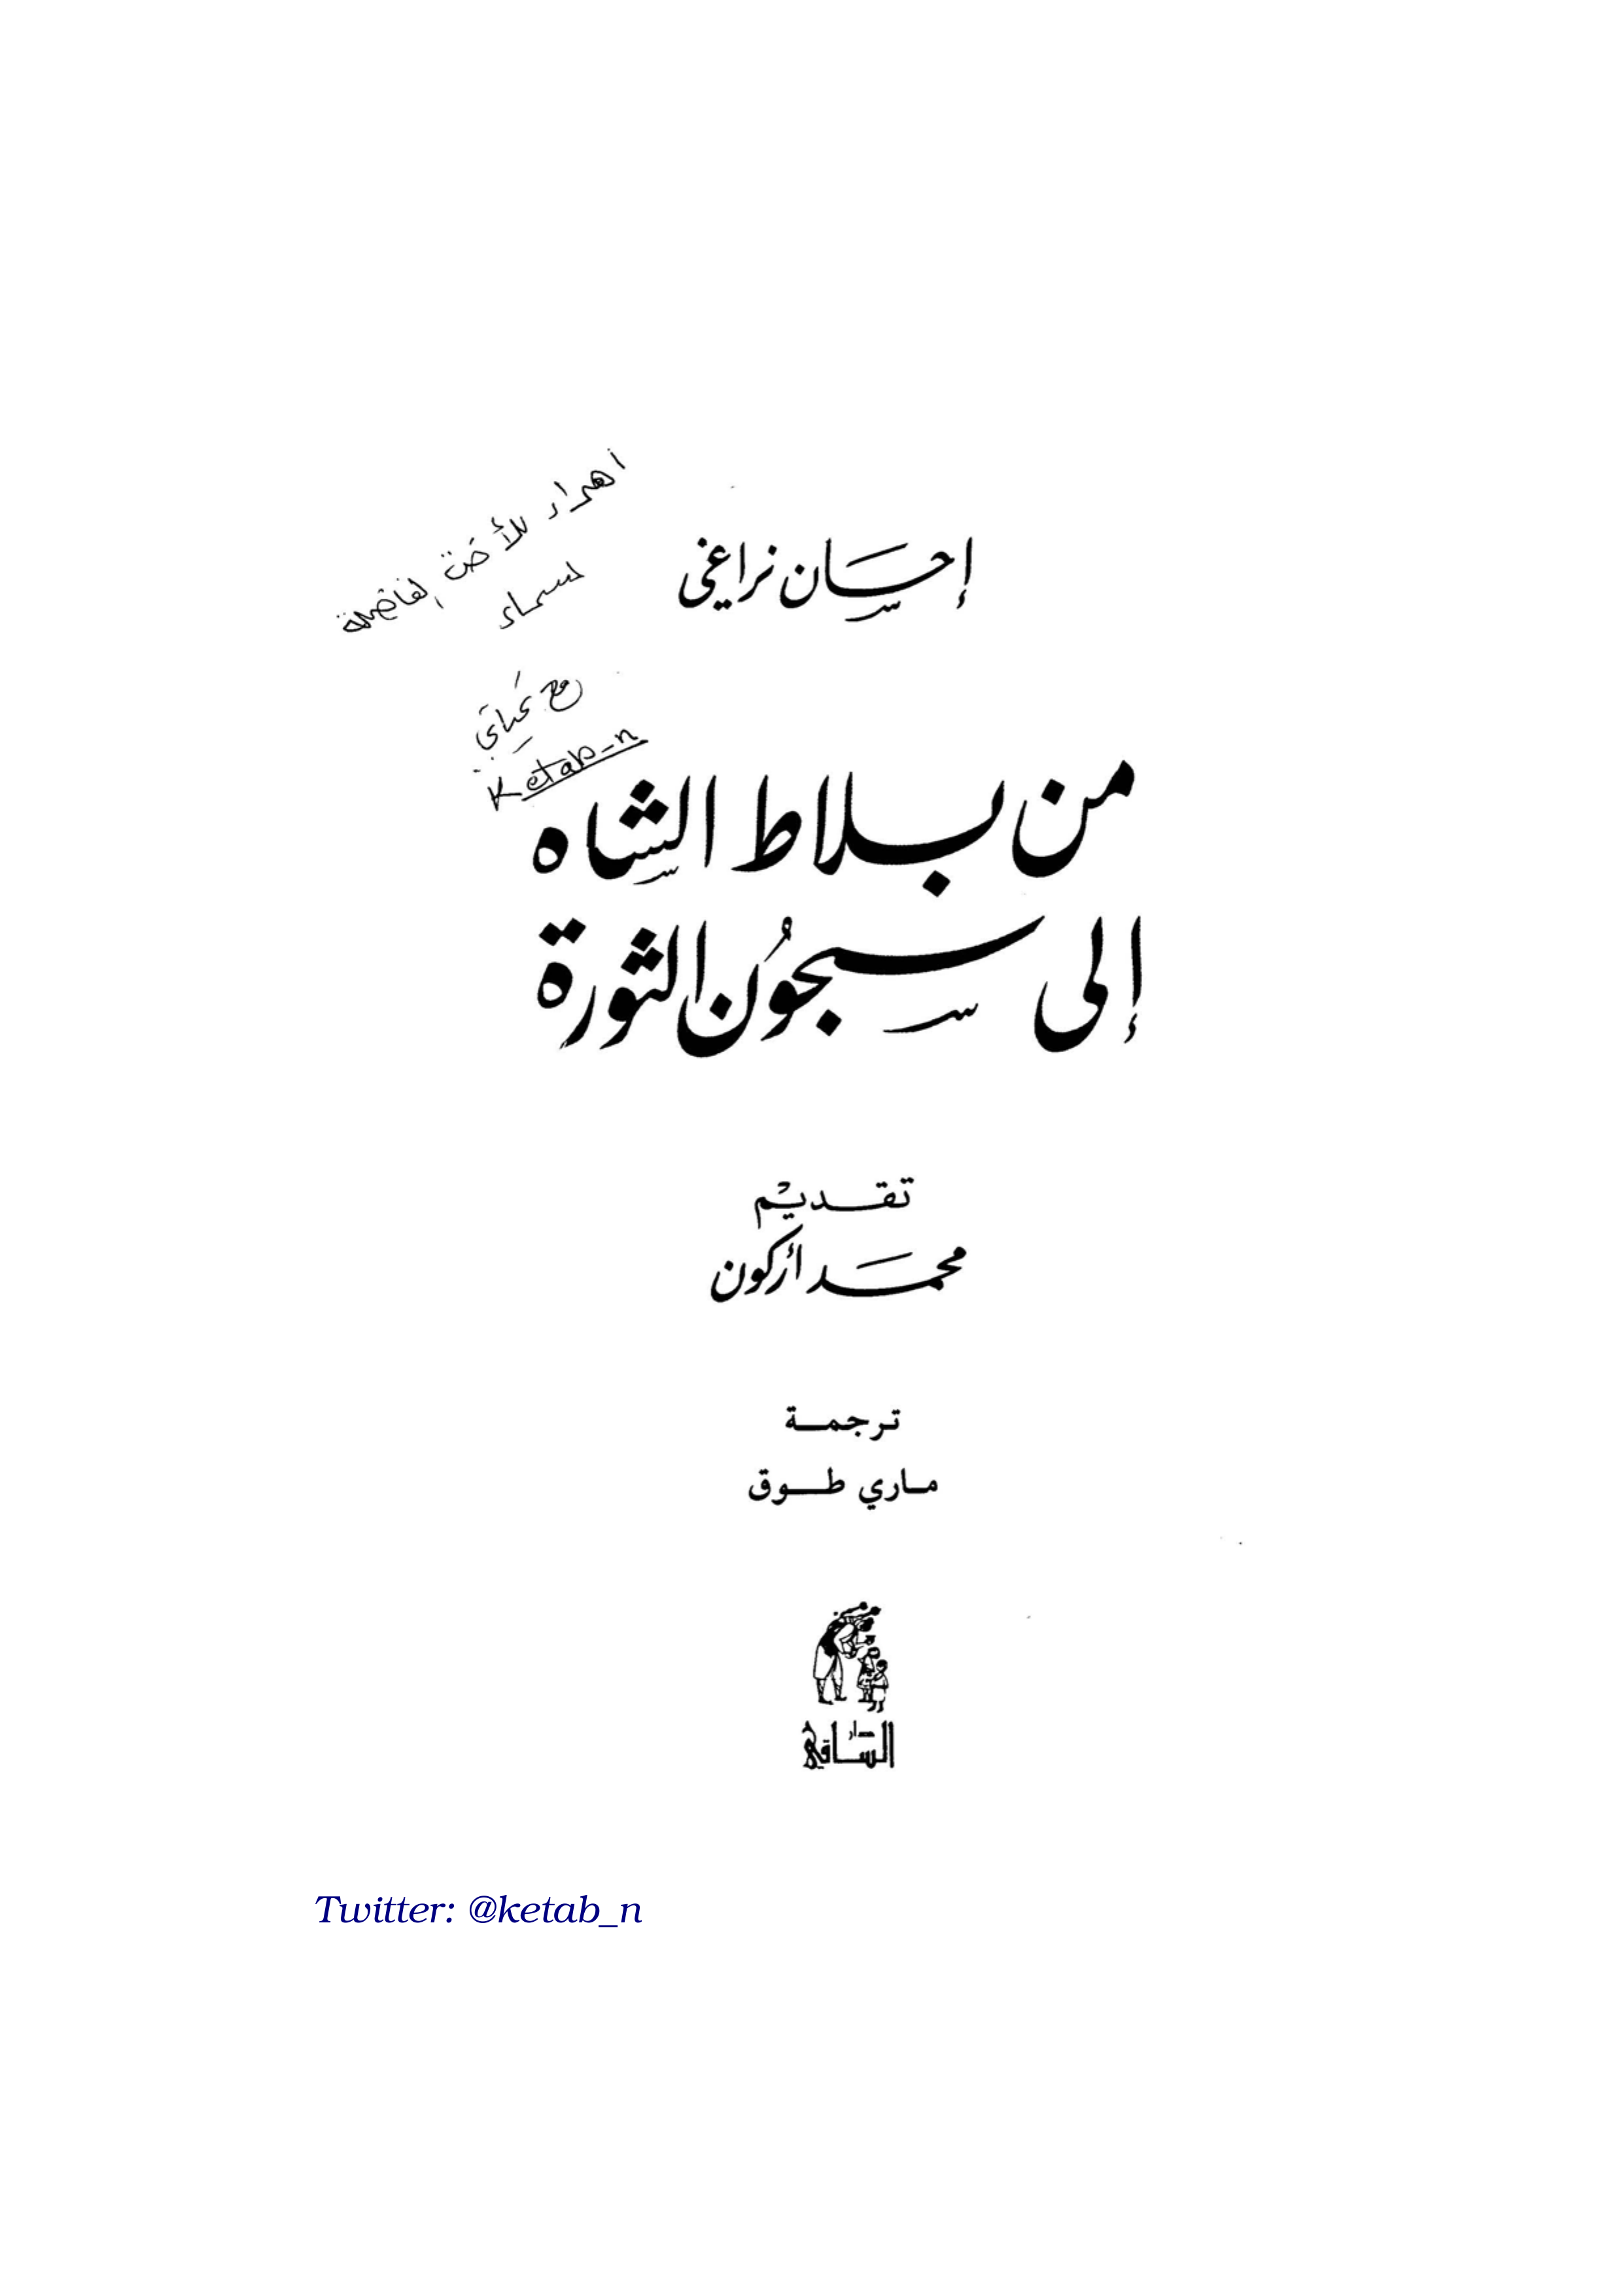 إحسان نراغي
اهداء للأخت الفاضلة
اسماء
مع تحياتي
Ketab-n
من بلاط الشاه
إلى سجون الثورة
تقديم
محمد أركون
ترجمة
ماري طوق
دار الساقي
Twitter: @ketab_n